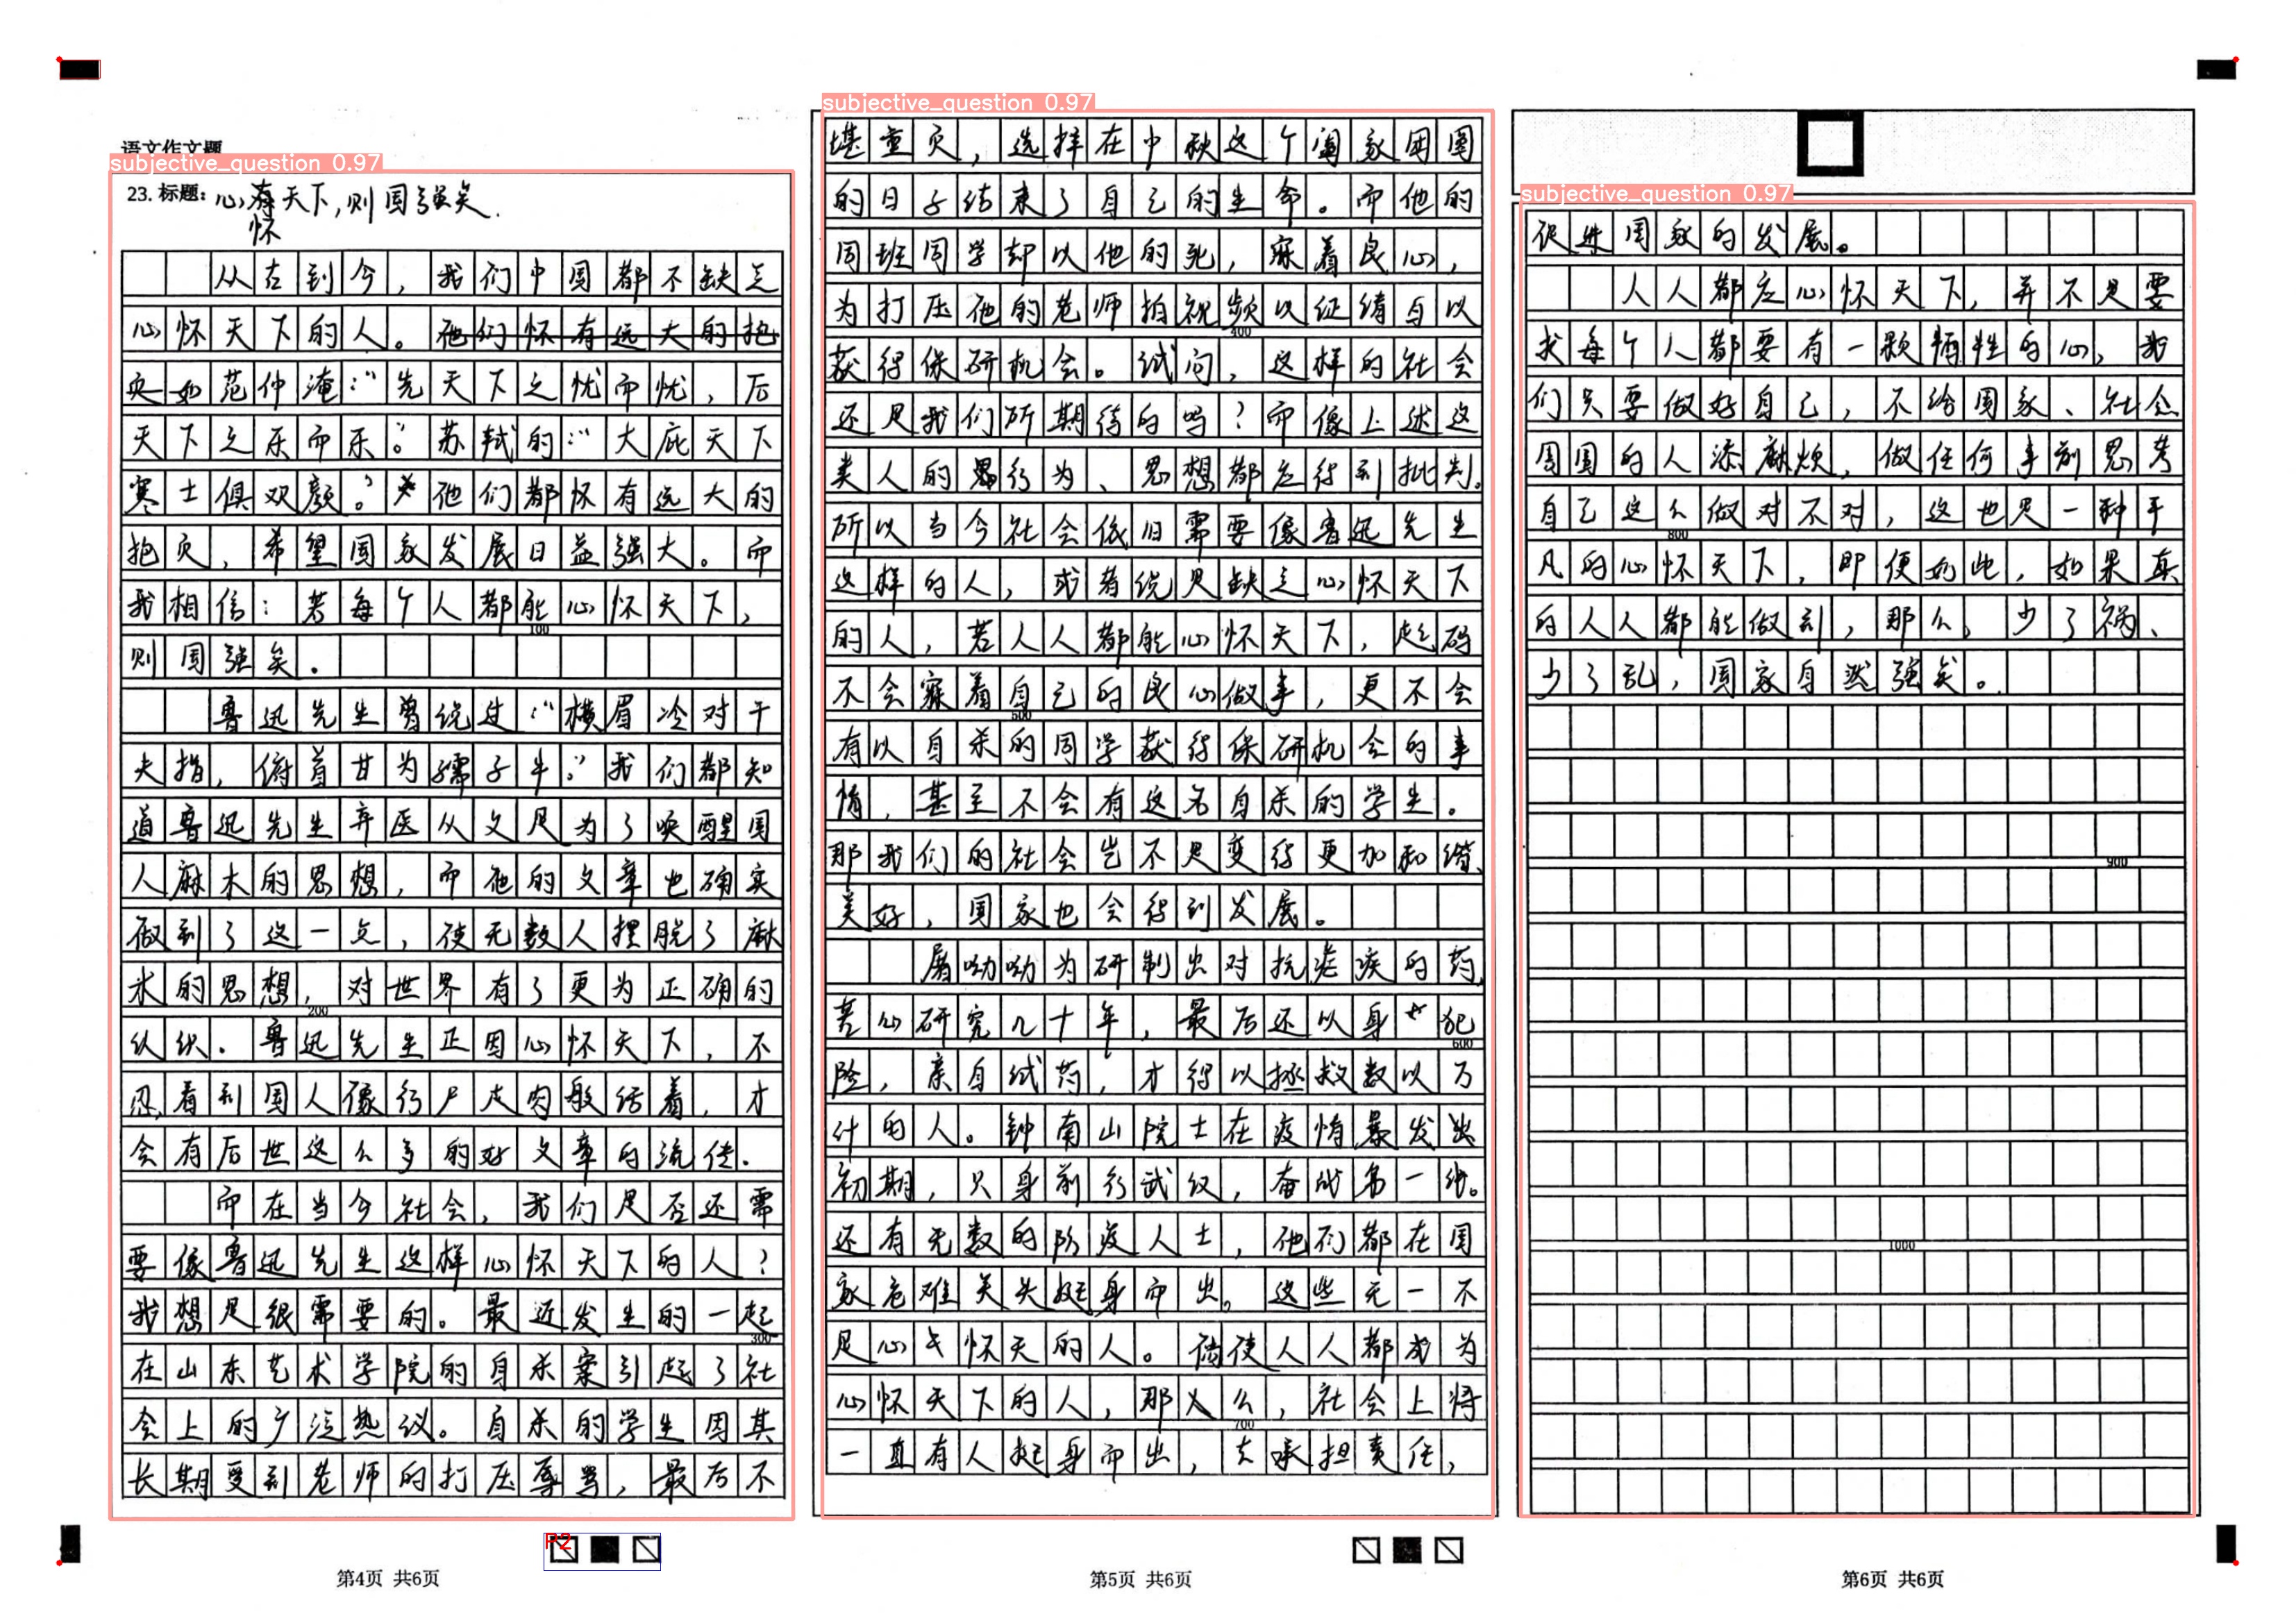 语文作文题
subjective_question 0.97
23. 标题：心怀天下，则国强矣．
从古到今，我们中国都不缺乏
心怀天下的人。他们怀有远大的抱
负如范仲淹：“先天下之忧而忧，后
天下之乐而乐。”苏轼的：“大庇天下
寒士俱欢颜。”他们都怀有远大的
抱负，希望国家发展日益强大。而
我相信：若每个人都能心怀天下，
100
则国强矣．
鲁迅先生曾说过：“横眉冷对千
夫指，俯首甘为孺子牛。”我们都知
道鲁迅先生弃医从文是为了唤醒国
人麻木的思想，而他的文章也确实
做到了这一点，使无数人摆脱了麻
木的思想，对世界有了更为正确的
200
认识．鲁迅先生正因心怀天下，不
忍看到国人像行尸走肉般活着，才
会有后世这么多的好文章的流传．
而在当今社会，我们是否还需
要像鲁迅先生这样心怀天下的人？
我想是很需要的。最近发生的一起
300
在山东艺术学院的自杀案引起了社
会上的广泛热议。自杀的学生因其
长期受到老师的打压辱骂，最后不
P2
第4页 共6页
subjective_question 0.97
堪重负，选择在中秋这个阖家团圆
的日子结束了自己的生命。而他的
同班同学却以他的死，寐着良心，
为打压他的老师拍视频以证绩与以
400
获得保研机会。试问，这样的社会
还是我们所期待的吗？而像上述这
类人的行为、思想都应得到批判。
所以当今社会依旧需要像鲁迅先生
这样的人，或者说是缺乏心怀天下
的人，若人人都能心怀天下，起码
不会寐着自己的良心做事，更不会
500
有以自杀的同学获得保研机会的事
情，甚至不会有这名自杀的学生。
那我们的社会岂不是变得更加和谐、
美好，国家也会得到发展。
屠呦呦为研制出对抗疟疾的药，
苦心研究几十年，最后还以身犯
600
险，亲自试药，才得以拯救数以万
计的人。钟南山院士在疫情暴发出
初期，只身前行武汉，奋战第一线。
还有无数的防疫人士，他们都在国
家危难关头挺身而出。这些无一不
是心怀天的人。倘使人人都成为
心怀天下的人，那么，社会上将
700
一直有人挺身而出，去承担责任，
第5页 共6页
subjective_question 0.97
促进国家的发展。
人人都应心怀天下，并不是要
求每个人都要有一颗牺牲的心，我
们只要做好自己，不给国家、社会
周围的人添麻烦，做任何事前思考
自己这么做对不对，这也是一种平
800
凡的心怀天下，即便如此，如果真
的人人都能做到，那么，少了祸、
少了乱，国家自然强矣。
900
1000
第6页 共6页